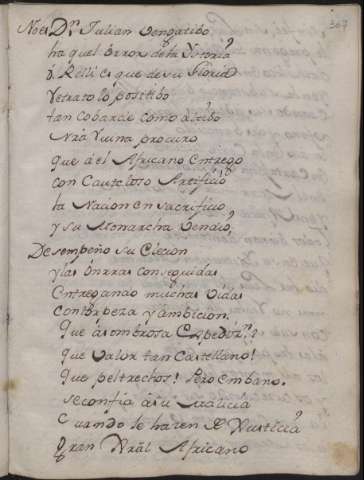 307
No es Dn. Julian vengatibo
ha quel borron de la Ystoria
O, Relli ci que de su Gloria
Retrato lo positibo
tan cobarde como altibo
Nra Ruina procuro
que á el Africano entrego
con Cauteloso Artificio
la Nacion en sacrificio,
y su Monarcha vendió,
Desempeño su Eleccion
y las ónrras conseguidas
Entregando muchas Vidas
con torpeza y ambicion.
Que ásombrosa Expedon.!
que valor tan Castellano!
que peltrechos! Pero en bano.
se confia á su malicia
Cuando le hazen Justicia
Gran Gral Africano